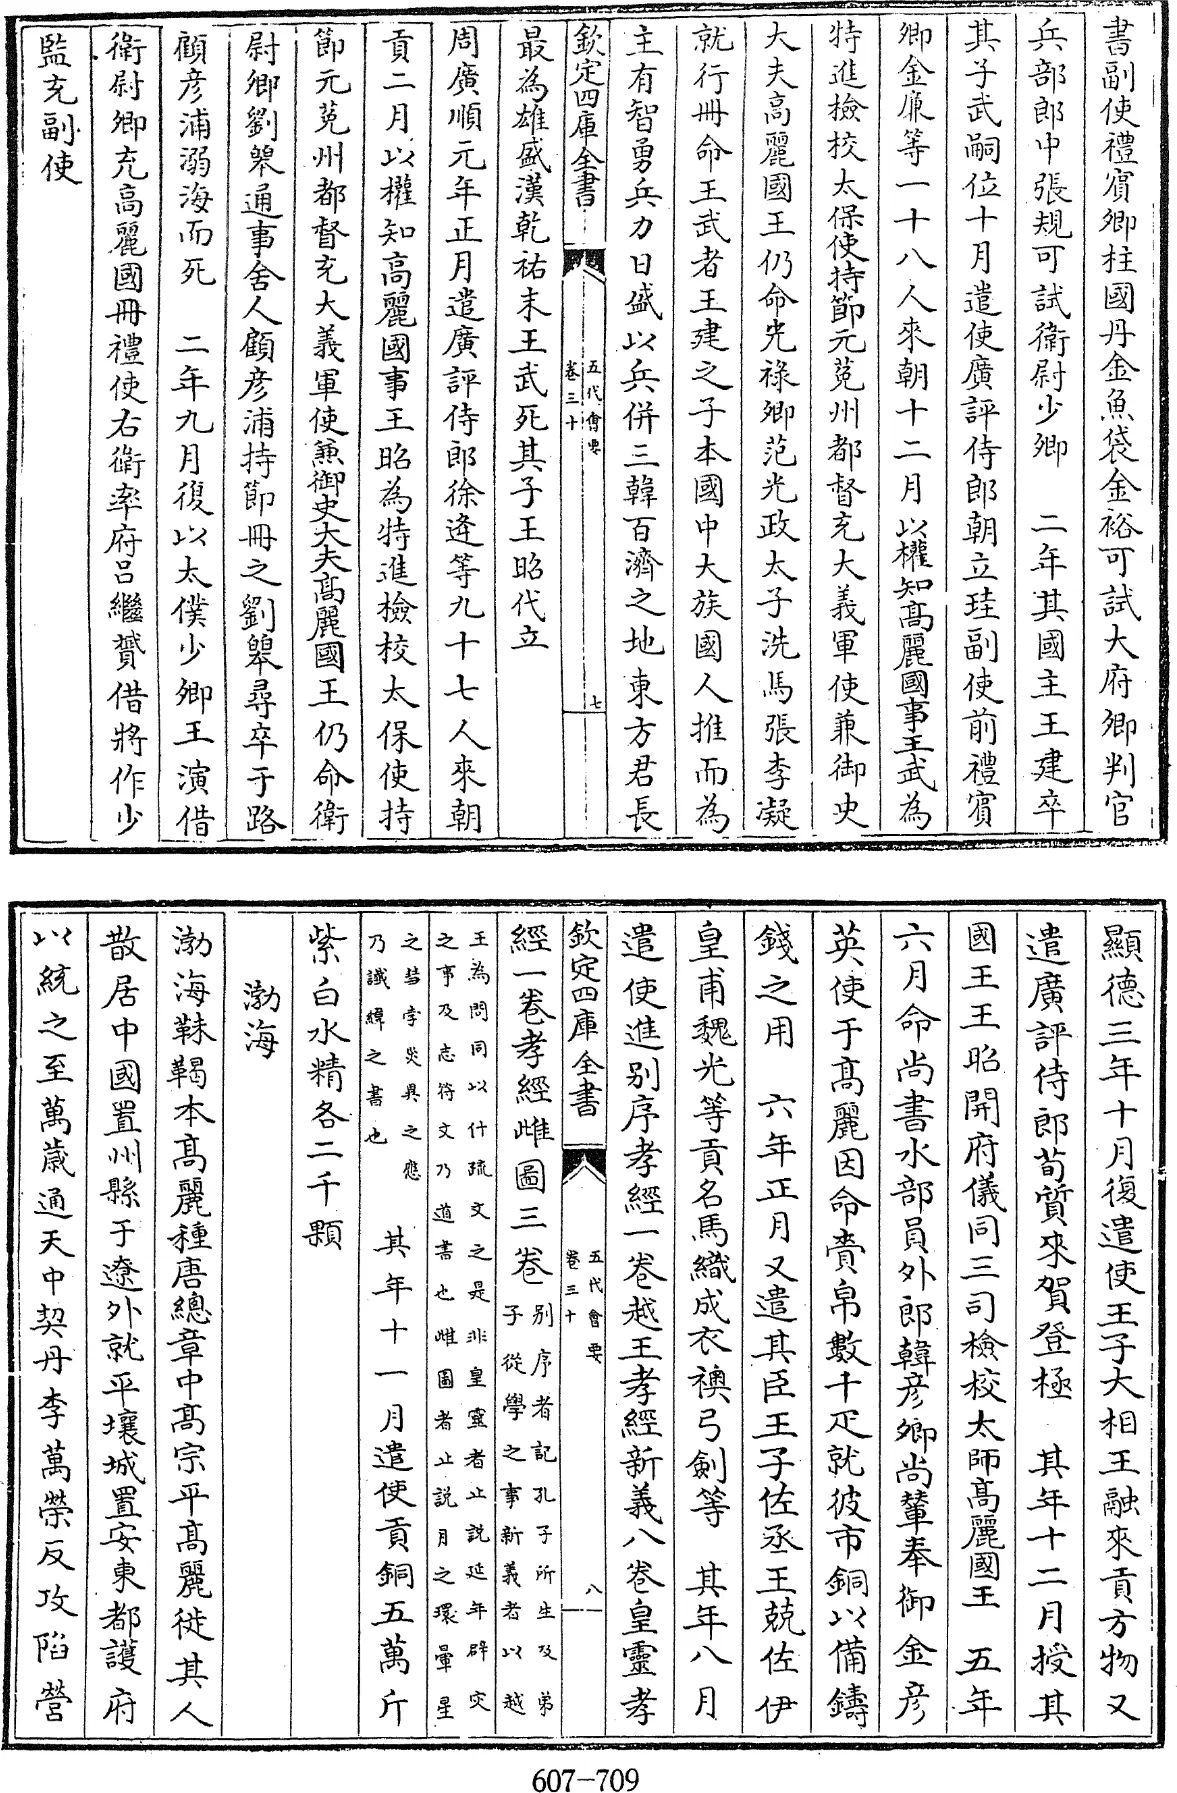 書副使禮賓卿柱國丹金魚袋金裕可試大府卿判官
兵部郎中張規可試衛尉少卿　二年其國主王建卒
其子武嗣位十月遣使廣評侍郎朝立珪副使前禮賓
卿金廉等一十八人來朝十二月以權知高麗國事王武為
特進檢校太保使持節元菟州都督充大義軍使兼御史
大夫高麗國王仍命光祿卿范光政太子洗馬張李凝
就行冊命王武者王建之子本國中大族國人推而為
主有智勇兵力日盛以兵併三韓百濟之地東方君長
欽定四庫全書
五代會要
卷三十
七
最為雄盛漢乾祐末王武死其子王昭代立
周廣順元年正月遣廣評侍郎徐逄等九十七人來朝
貢二月以權知高麗國事王昭為特進檢校太保使持
節元菟州都督充大義軍使兼御史大夫高麗國王仍命衛
尉卿劉皞通事舍人顧彥浦持節冊之劉皞尋卒于路
顧彥浦溺海而死　二年九月復以太僕少卿王演借
衛尉卿充高麗國冊禮使右衛率府呂繼贇借將作少
監充副使
顯德三年十月復遣使王子大相王融來貢方物又
遣廣評侍郎荀質來賀登極　其年十二月授其
國王王昭開府儀同三司檢校太師高麗國王　五年
六月命尚書水部員外郎韓彦卿尚輦奉御金彦
英使于高麗因命賫帛數千疋就彼市銅以備鑄
錢之用　六年正月又遣其臣王子佐丞王兢佐伊
皇甫魏光等貢名馬織成衣襖弓劍等　其年八月
遣使進别序孝經一卷越王孝經新義八卷皇靈孝
欽定四庫全書
五代會要
卷三十
八
經一卷孝經雌圖三卷
别序者記孔子所生及弟
子從學之事新義者以越
王為問同以什疏文之是非皇靈者止說延年辟灾
之事及志符文乃道書也雌圖者止説月之環暈星
之彗孛災異之應
乃讖緯之書也
其年十一月遣使貢銅五萬斤
紫白水精各二千顆
渤海
渤海靺鞨本高麗種唐總章中高宗平高麗徙其人
散居中國置州縣于遼外就平壤城置安東都護府
以統之至萬歲通天中契丹李萬榮反攻陷營
607-709